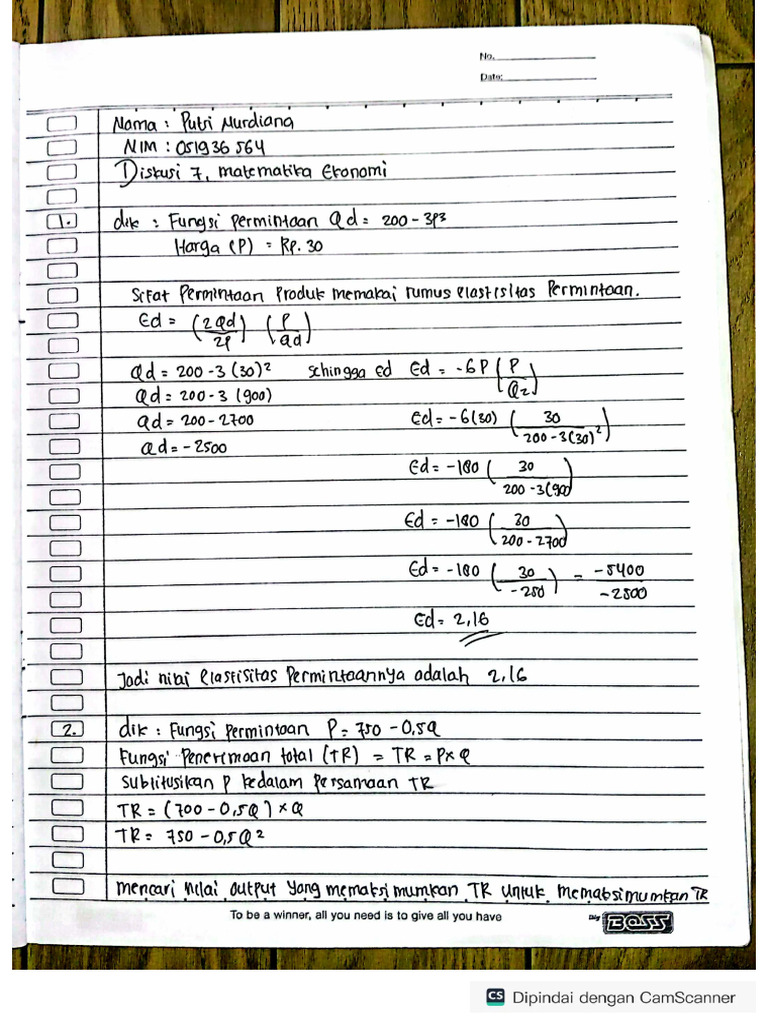 No.
Date:
Nama : Putri Nurdiana
NIM : 051936564
Diskusi 7, matematika Ekonomi
1. dik : Fungsi Permintaan Qd = 200 - 3P³
Harga (P) = Rp. 30
Sifat Permintaan Produk memakai rumus elastisitas Permintaan.
Ed = (2Qd/2P) (P/Qd)
Qd = 200 - 3 (30)² Sehingga Ed Ed = -6P (P/Q2)
Qd = 200 - 3 (900)
Qd = 200 - 2700 Ed = -6(30) (30/200 - 3(30)²)
Qd = -2500
Ed = -180 (30/200 - 3(900)
Ed = -180 (30/200 - 2700)
Ed = -180 (30/-250) = -5400/-2500
Ed = 2,16
Jadi nilai elastisitas Permintaannya adalah 2,16
2. dik : Fungsi permintaan P = 750 - 0,5Q
Fungsi Penerimaan total (TR) = TR = P x Q
Sublitusikan P kedalam Persamaan TR
TR = (700 - 0,5Q) x Q
TR = 750 - 0,5Q²
mencari nilai output yang memaksimumkan TR untuk memaksimumkan TR
To be a winner, all you need is to give all you have
Big BOSS
CS Dipindai dengan CamScanner